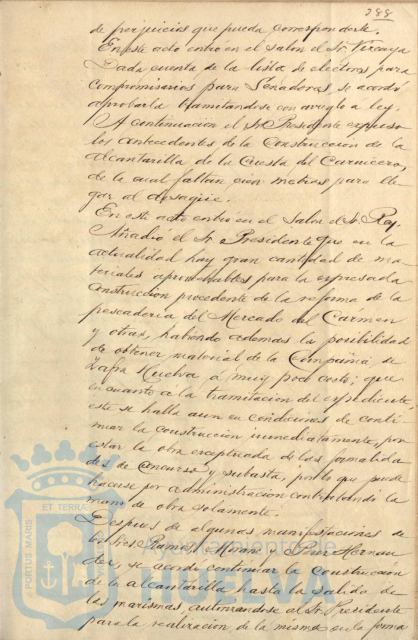 288
de perjuicios que pueda corresponderle.
En este acto entró en el salon el Sr. Vizcaya
Dada cuenta de la lista de electores para
compromisarios para Senadores, se acordó
aprobarla tramitandose con arreglo a ley.
A continuación el Sr. Presidente expresó
los antecedentes de la construccion de la
alcantarilla de la Cuesta del Carnicero,
de la cual faltan cien metros para lle
gar al desagüe.
En este acto entró en el salon el Sr. Rey
Añadió el Sr. Presidente que en la
actualidad hay gran cantidad de ma
teriales aprovechables para la expresada
construcción procedente de la reforma de la
pescaderia del Mercado del Carmen
y otras, habiendo ademas la posibilidad
de obtener material de la Compañia de
Zafra Huelva á muy poco costo; que
en cuanto a la tramitacion del expediente
este se halla aun en condiciones de conti
nuar la construcción inmediatamente, por
estar la obra exceptuada de las formalida
des de concurso y subasta, por lo que puede
hacerse por administración contratando la
mano de obra solamente.
Despues de algunas manifestaciones de
los Sres. Ramos, Moran y Ruiz Hernan
dez, se acordó continuar la construcción
de la alcantarilla hasta la salida de
las marismas, autorizandose al Sr. Presidente
para la realización de la misma en la forma
PORTUS MARIS
ET TERRÆ
Ayuntamiento de
HUELVA